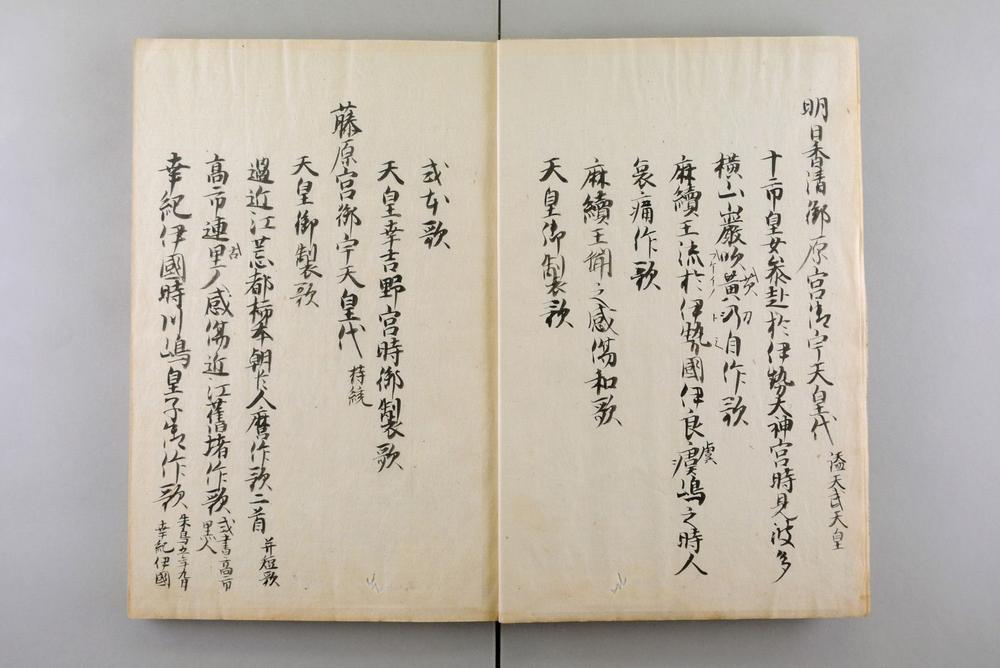 明日香清御原宮御宇天皇代 謚天武天皇
十市皇女参赴於伊勢大神宮時見波多
横山巌吹黄刀自作歌
麻續王流於伊勢國伊良虞嶋之時人
哀痛作歌
麻續王聞之感傷和歌
天皇御製歌
或本歌
天皇幸吉野宮時御製歌
藤原宮御宇天皇代 持統
天皇御製歌
過近江荒都柿本朝臣人麿作歌二首 并短歌
高市連里人感傷近江舊堵作歌 或書高市里人
幸紀伊國時川嶋皇子御作歌 朱鳥五年九月幸紀伊國